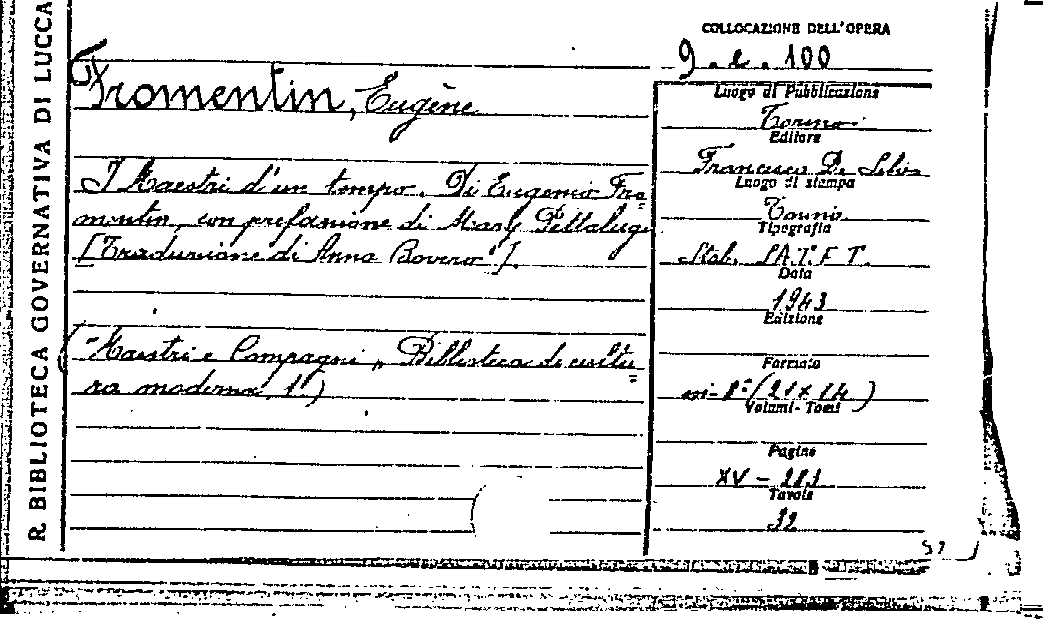 R. BIBLIOTECA GOVERNATIVA DI LUCCA
COLLOCAZIONE DELL'OPERA
9. e. 100
Fromentin, Eugène
I Maestri d'un tempo. Di Eugenio Fro=
mentin, con prefazione di Mary Pittaluga
[Traduzione di Anna Bovero].
("Maestri e Compagni" Biblioteca di cultu=
ra moderna, 1.)
Luogo di Pubblicazione
Torino
Editore
Francesco De Silva
Luogo di stampa
Torino
Tipografia
Stab. S.A.T.E.T.
Data
1943
Edizione
Formato
in-8° (21x14)
Volumi-Tomi
Pagine
XV - 283
Tavole
32